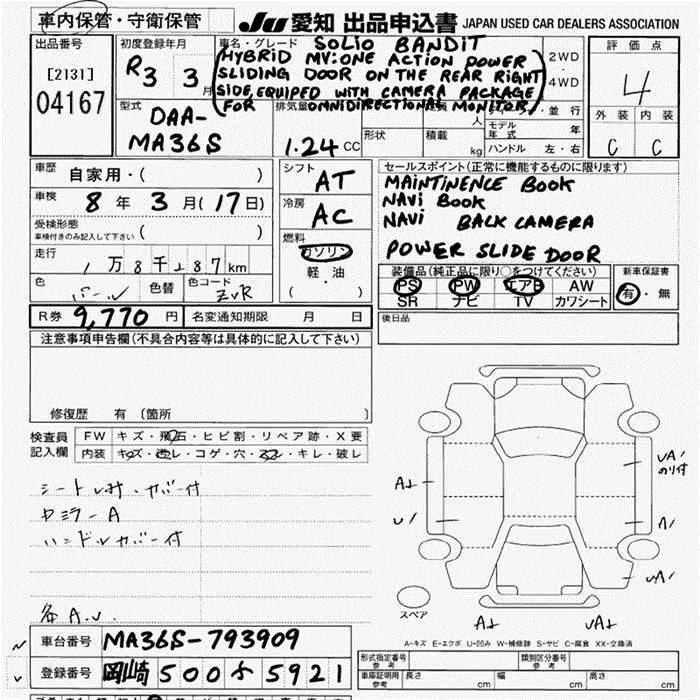 車内保管・守衛保管
JU 愛知 出品申込書 JAPAN USED CAR DEALERS ASSOCIATION
出品番号
[2131]
04167
初度登録年月
R3 3月
車名・グレード SOLIO BANDIT
(HYBRID MV:ONE ACTION POWER
SLIDING DOOR ON THE REAR RIGHT
SIDE, EQUIPED WITH CAMERA PACKAGE
FOR OMNIDIRECTIONAL MONITOR)
2WD
4WD
評価点
4
外装 内装
C C
型式
DAA-
MA36S
排気量
1.24 CC
人
形状 積載 kg
並行
モデル年式 年
ハンドル 左・右
車歴 自家用・( )
車検 8年 3月(17日)
受検形態
車検付きのみ記入して下さい ( )
走行 1万8千287km
色 色替 色コード
ZVR
シフト
AT
冷房
AC
燃料
ガソリン
軽油
( ・ )
セールスポイント(正常に機能するものに限ります)
MAINTINENCE BOOK
NAVI BOOK
NAVI BACK CAMERA
POWER SLIDE DOOR
装備品(純正品に限り○をつけてください)
PS PW エアB AW
SR ナビ TV カワシート
新車保証書
有・無
R券 9,770円 名変通知期限 月 日
後日品
注意事項申告欄(不具合内容等は具体的に記入して下さい)
修復歴 有 〔箇所 〕
検査員記入欄
FW キズ・飛石・ヒビ割・リペア跡・X要
内装 キズ・汚レ・コゲ・穴・スレ・キレ・破レ
シートしみ・カバー付
カミラーA
ハンドルカバー付
各A.U.
A1
U1
UA1
のり付
A1
UA1
A1 UA1
スペア
A-キズ E-エクボ U-凹み W-補修跡 S-サビ C-腐食 XX-交換済
車台番号 MA36S-793909
登録番号 岡崎 500 す 5921
形式指定番号
参考
類別区分番号
参考
車庫証明用
参考
長さ cm 幅 cm 高さ cm